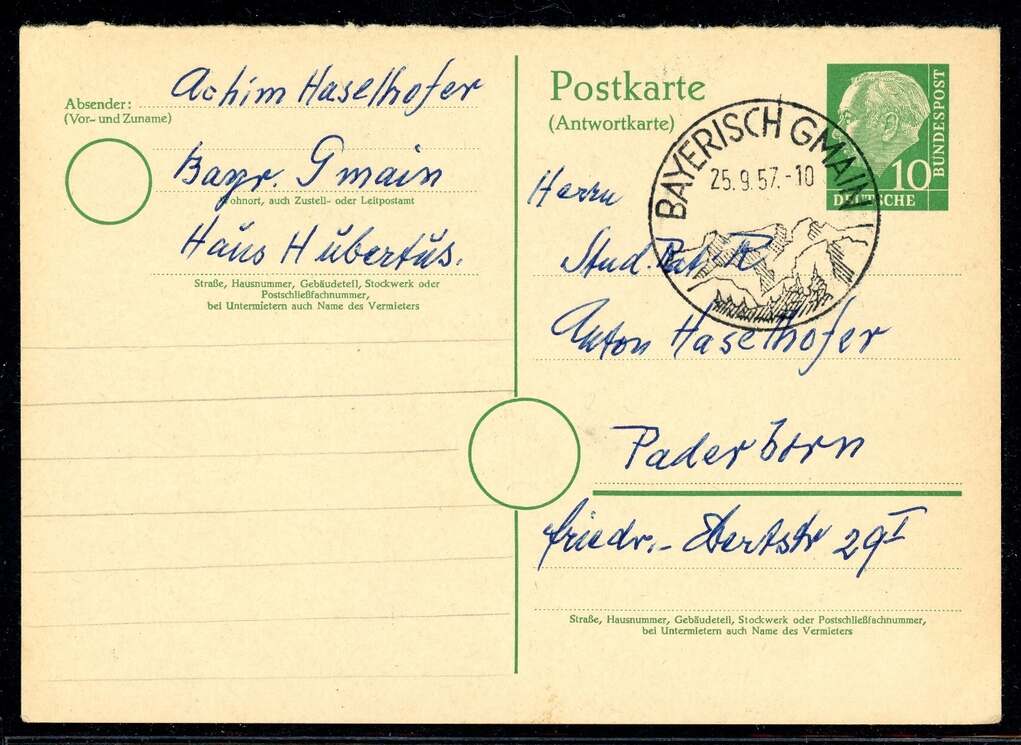 Absender: Achim Haselhofer
(Vor- und Zuname)
Bayr. Gmain
Wohnort, auch Zustell- oder Leitpostamt
Haus Hubertus.
Straße, Hausnummer, Gebäudeteil, Stockwerk oder
Postschließfachnummer,
bei Untermietern auch Name des Vermieters
Postkarte
(Antwortkarte)
BAYERISCH GMAIN
25.9.57.-10
10
DEUTSCHE
BUNDESPOST
Herrn
Stud. Rat
Anton Haselhofer
Paderborn
Friedr.-Ebertstr 29 I
Straße, Hausnummer, Gebäudeteil, Stockwerk oder Postschließfachnummer,
bei Untermietern auch Name des Vermieters